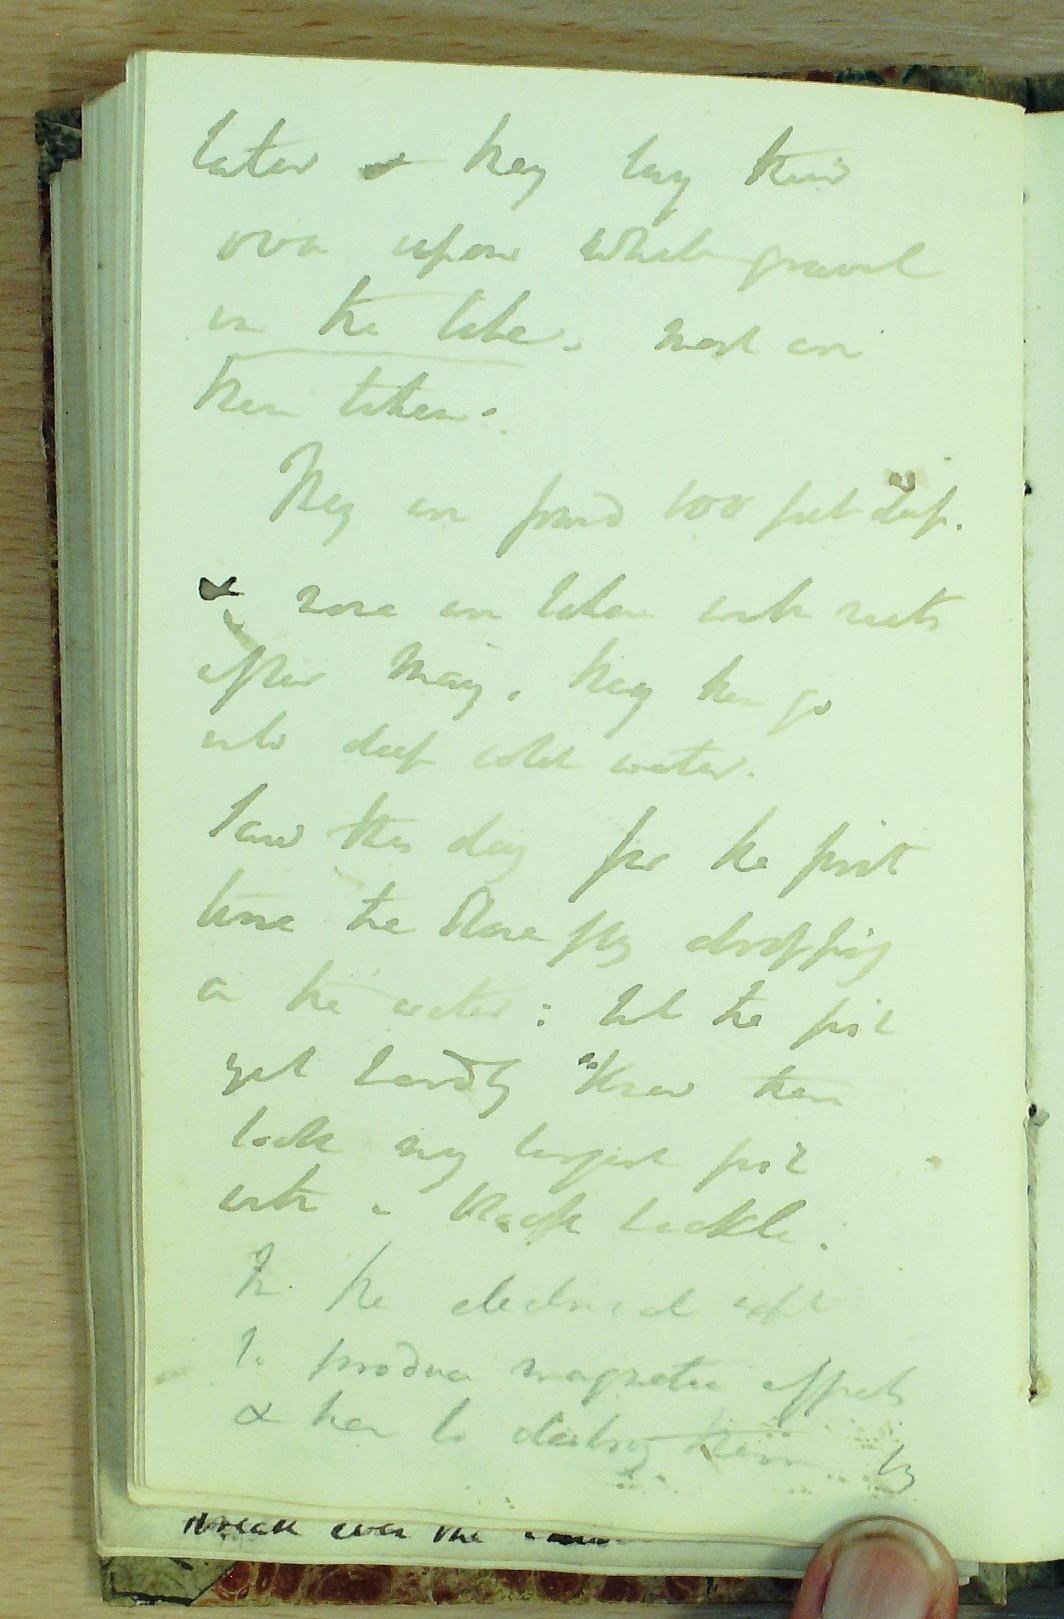 later & they lay their
ova upon white gravel
in the lake. most are
then taken.
They are found 100 feet deep.
& none are taken with nets
after May. they then go
into deep cold water.
Saw this day for the first
time the Stone fly dropping
on the water: but the fish
yet hardly know them
took my largest fish
with a black hackle.
In the electrical expt
to produce magnetic effects
& then to destroy them by
break over the